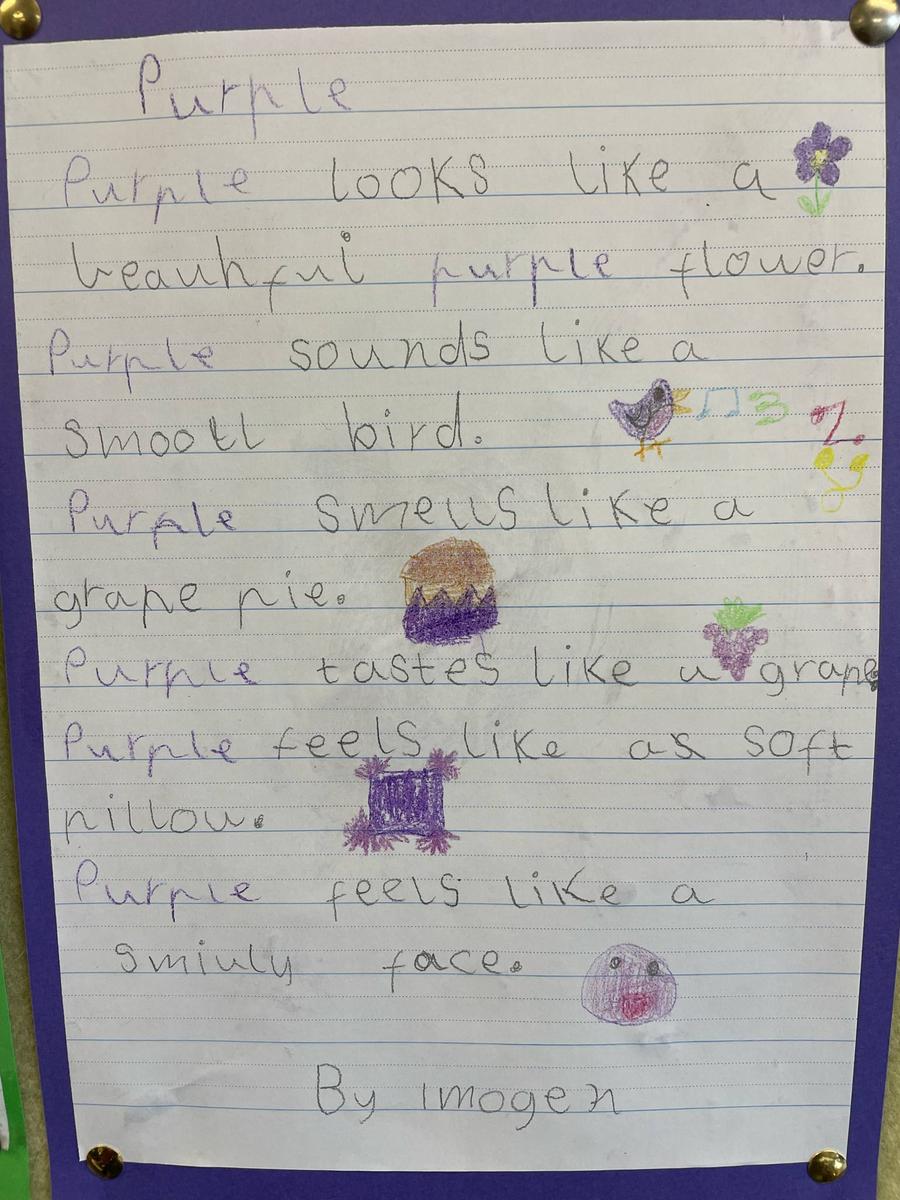 Purple
Purple looks like a
beautiful purple flower.
Purple sounds like a
smooth bird.
Purple smells like a
grape pie.
Purple tastes like a grape
Purple feels like as soft
pillow.
Purple feels like a
smiuly face.
By imogen